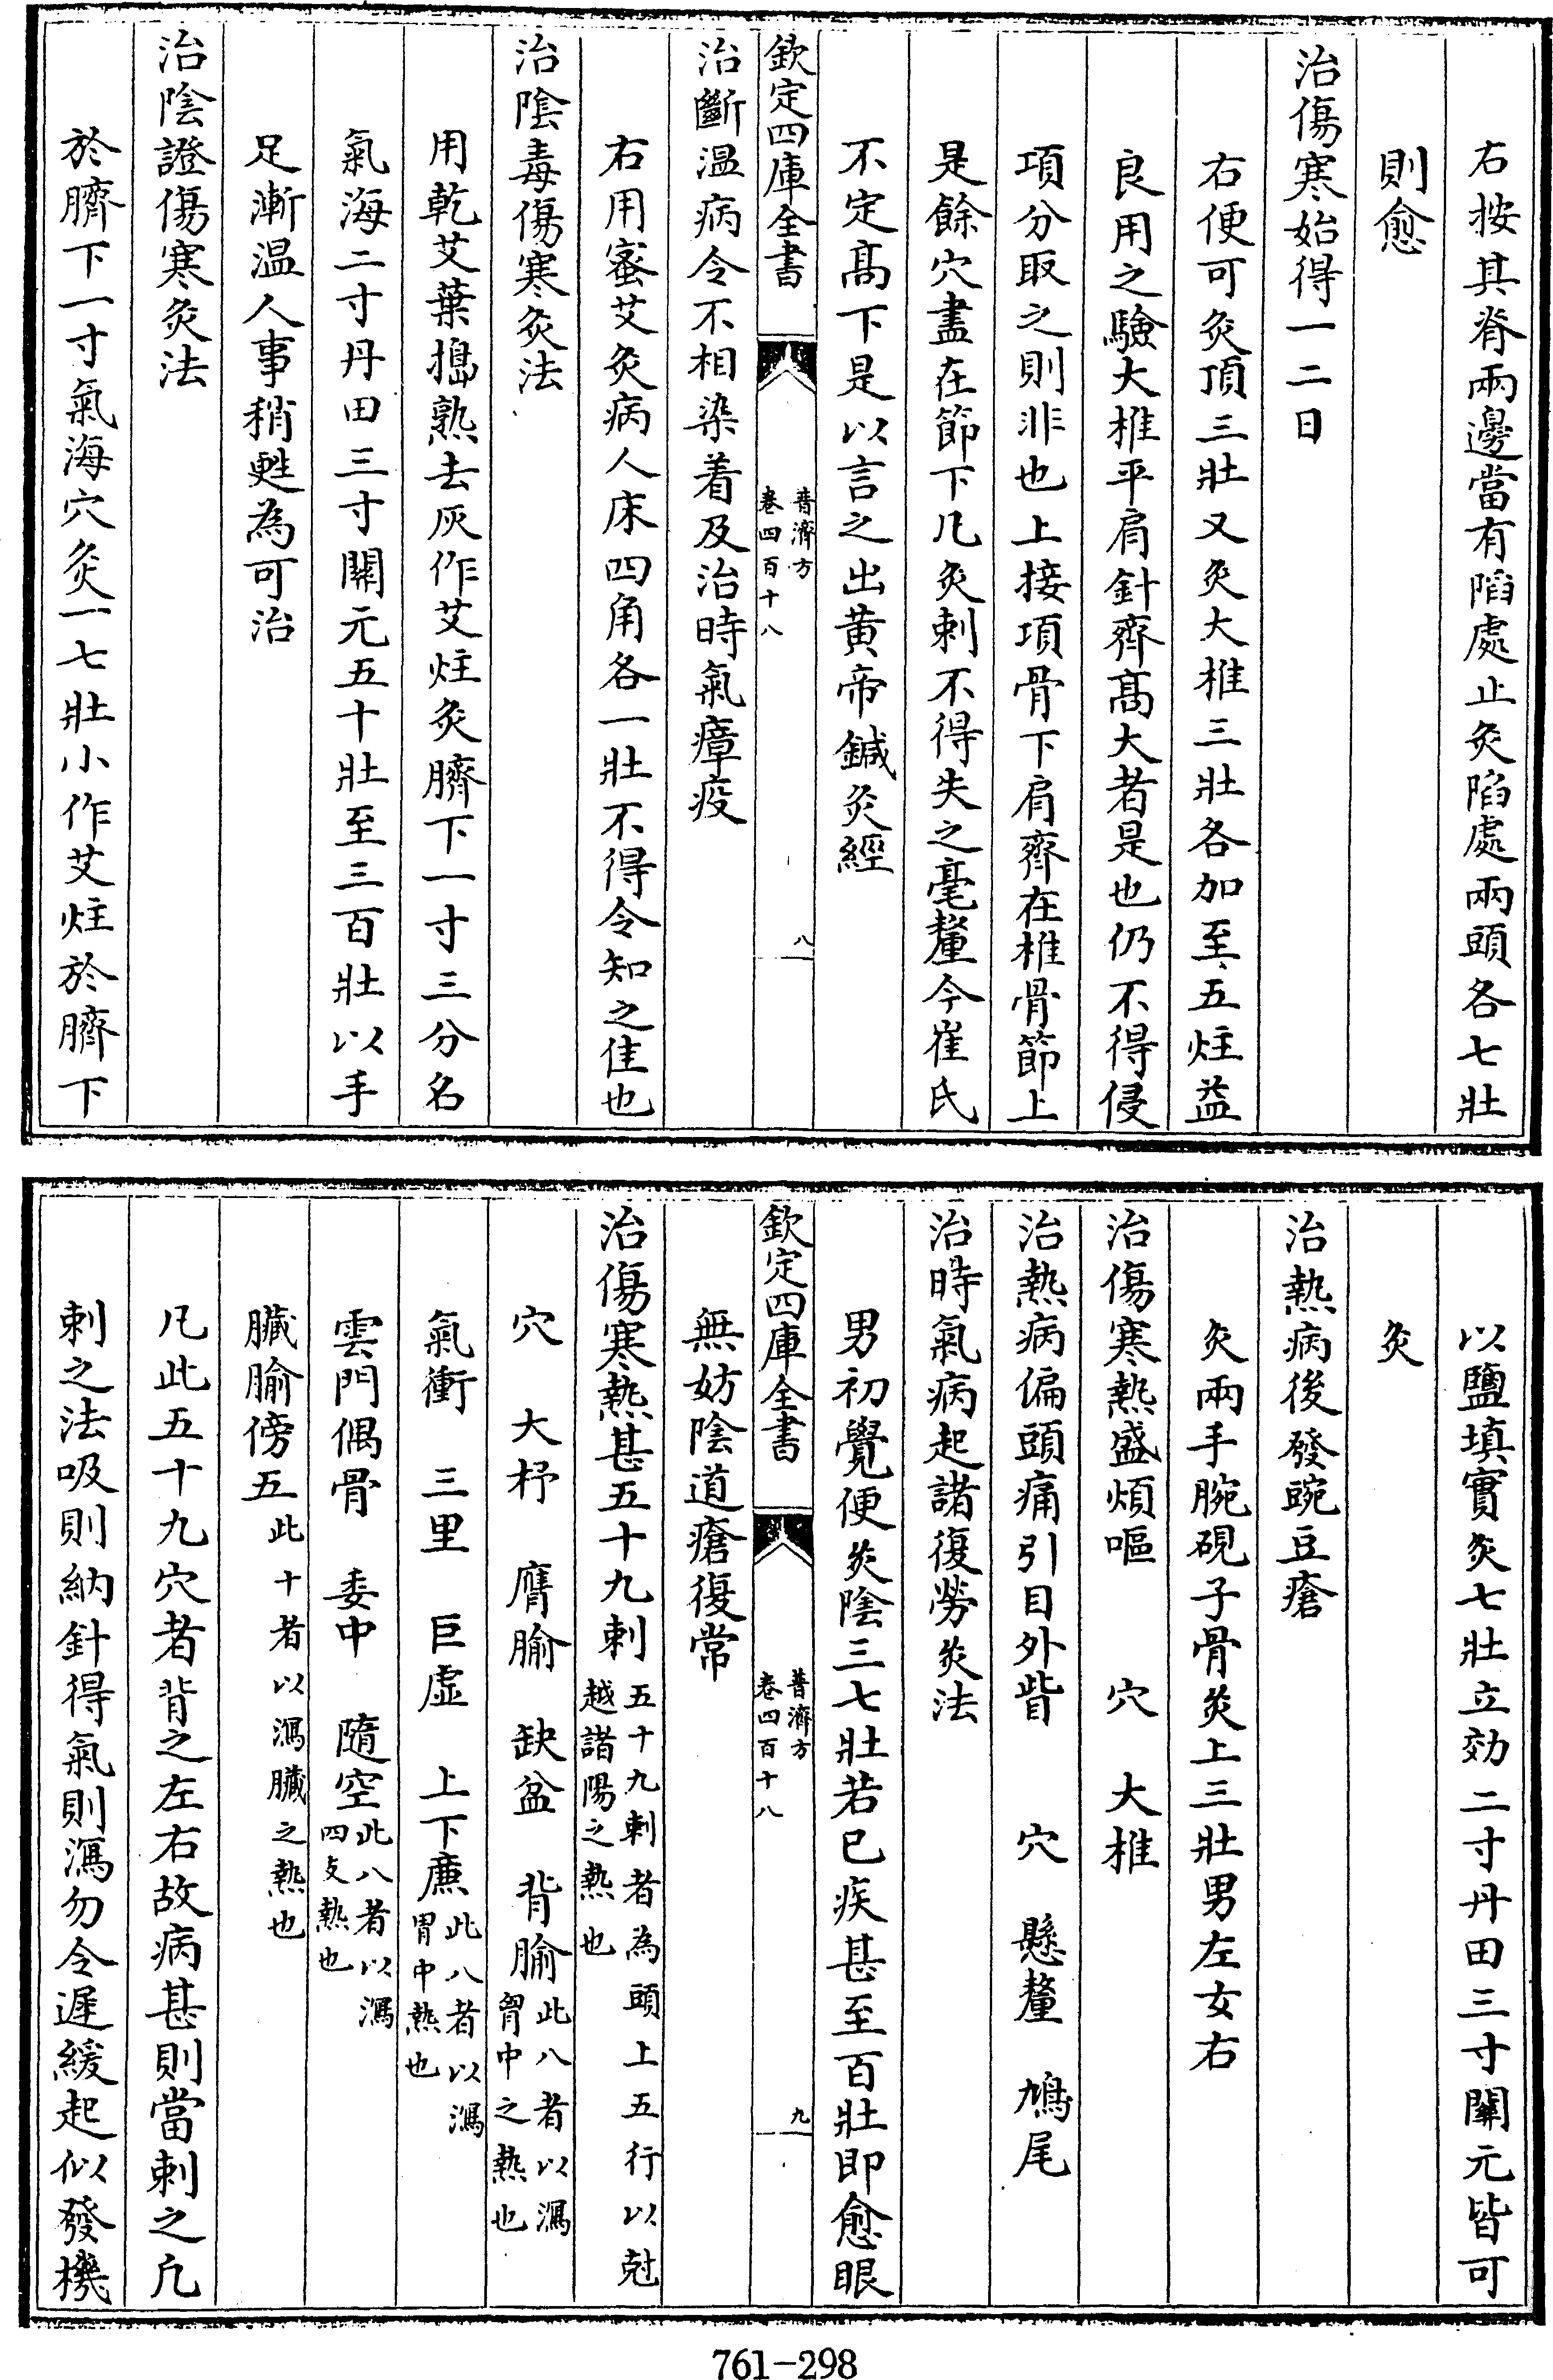 右按其脊兩邊當有陷處止灸陷處兩頭各七壯
則愈
治傷寒始得一二日
右便可灸頂三壯又灸大椎三壯各加至五炷益
良用之驗大椎平肩針齊髙大者是也仍不得侵
項分取之則非也上接項骨下肩齊在椎骨節上
是餘穴盡在節下凡灸刺不得失之毫釐今崔氏
不定髙下是以言之出黄帝鍼灸經
欽定四庫全書
普濟方
卷四百十八
八
治斷温病令不相染着及治時氣瘴疫
右用蜜艾灸病人床四角各一壯不得令知之佳也
治陰毒傷寒灸法
用乾艾葉搗熟去灰作艾炷灸臍下一寸三分名
氣海二寸丹田三寸關元五十壯至三百壯以手
足漸温人事稍甦為可治
治陰證傷寒灸法
於臍下一寸氣海穴灸一七壯小作艾炷於臍下
以鹽填實灸七壯立効二寸丹田三寸關元皆可
灸
治熱病後發豌豆瘡
灸兩手腕硯子骨灸上三壯男左女右
治傷寒熱盛煩嘔　穴　大椎
治熱病偏頭痛引目外眥　穴　懸釐　鳩尾
治時氣病起諸復勞灸法
男初覺便灸陰三七壯若已疾甚至百壯即愈眼
欽定四庫全書
普濟方
卷四百十八
九
無妨陰道瘡復常
治傷寒熱甚五十九刺五十九刺者為頭上五行以尅
越諸陽之熱也
穴　大杼　膺腧　缺盆　背腧此八者以瀉
胷中之熱也
氣衝　三里　巨虛　上下廉此八者以瀉
胃中熱也
雲門偶骨　委中　隨空此八者以瀉
四支熱也
臟腧傍五此十者以瀉臟之熱也
凡此五十九穴者背之左右故病甚則當刺之凡
刺之法吸則納針得氣則瀉勿令遲緩起似發機
761-298